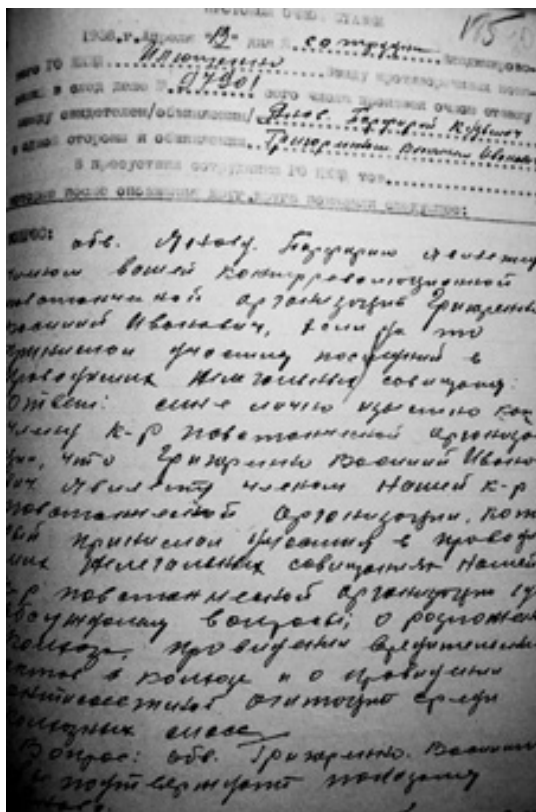 ПРОТОКОЛ ОЧНОЙ СТАВКИ
1938.г. Апреля "13" дня Я. сотрудн.
ного РО НКВД Илющенко ввиду противоречивых пока-
в след деле № 97901 сего числа произвел очную ставку
между свидетелем/обвиняемым/ Яков. Порфирий Кузьмич
с одной стороны и обвиняемым Грихренко Василий Иванович
В присутствии сотрудника РО НКВД тов.
которые после опознания друг.друга показали следующее:
ВОПРОС: обв. Порфирию является
членом вашей контрреволюционной
повстанческой организации
Василий Иванович, если да то
принимал участие последний в
проводимых нелегальных совещаниях:
Ответ: мне лично известно как
члену к-р повстанческой организа-
ции, что Василий Ивано-
вич является членом нашей к-р
повстанческой организации, кото-
рый принимал участия в проводи-
мых нелегальных совещаниях нашей
к-р повстанческой организации
обсуждали вопросы о разложении
колхоза, проведении вредительских
актов в колхозе и о проведении
антисоветской агитации среди
колхозных масс
Вопрос: обв. Василий
подтверждает показания